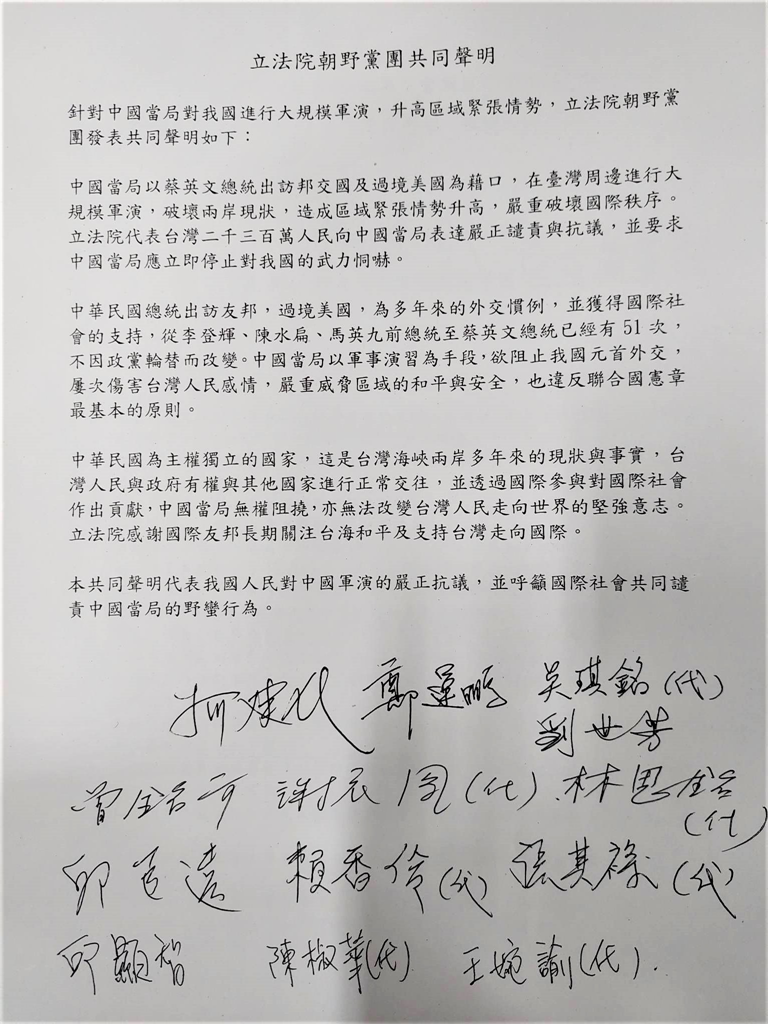 立法院朝野黨團共同聲明
針對中國當局對我國進行大規模軍演，升高區域緊張情勢，立法院朝野黨
團發表共同聲明如下：
中國當局以蔡英文總統出訪邦交國及過境美國為藉口，在臺灣周邊進行大
規模軍演，破壞兩岸現狀，造成區域緊張情勢升高，嚴重破壞國際秩序。
立法院代表台灣二千三百萬人民向中國當局表達嚴正譴責與抗議，並要求
中國當局應立即停止對我國的武力恫嚇。
中華民國總統出訪友邦，過境美國，為多年來的外交慣例，並獲得國際社
會的支持，從李登輝、陳水扁、馬英九前總統至蔡英文總統已經有51次，
不因政黨輪替而改變。中國當局以軍事演習為手段，欲阻止我國元首外交，
屢次傷害台灣人民感情，嚴重威脅區域的和平與安全，也違反聯合國憲章
最基本的原則。
中華民國為主權獨立的國家，這是台灣海峽兩岸多年來的現狀與事實，台
灣人民與政府有權與其他國家進行正常交往，並透過國際參與對國際社會
作出貢獻，中國當局無權阻撓，亦無法改變台灣人民走向世界的堅強意志。
立法院感謝國際友邦長期關注台海和平及支持台灣走向國際。
本共同聲明代表我國人民對中國軍演的嚴正抗議，並呼籲國際社會共同譴
責中國當局的野蠻行為。
柯建銘 鄭運鵬 吳琪銘(代)
劉世芳
曾銘宗 謝衣鳯(代) 林思銘
(代)
邱臣遠 賴香伶(代) 張其祿(代)
邱顯智 陳椒華(代) 王婉諭(代).